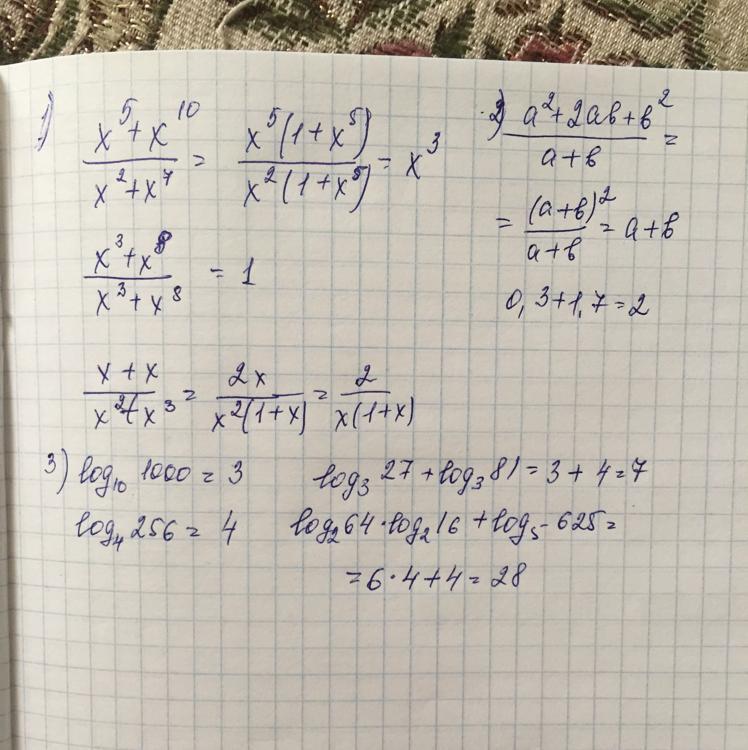 1) (x^5+x^10)/(x^2+x^7) = (x^5(1+x^5))/(x^2(1+x^5)) = x^3
(x^3+x^8)/(x^3+x^8) = 1
(x+x)/(x^2+x^3) = 2x/(x^2(1+x)) = 2/(x(1+x))
2) (a^2+2ab+b^2)/(a+b) =
= (a+b)^2/(a+b) = a+b
0,3+1,7=2
3) log_10 1000 = 3
log_4 256 = 4
log_3 27 + log_3 81 = 3+4=7
log_2 64 · log_2 16 + log_5 - 625 =
= 6·4+4 = 28